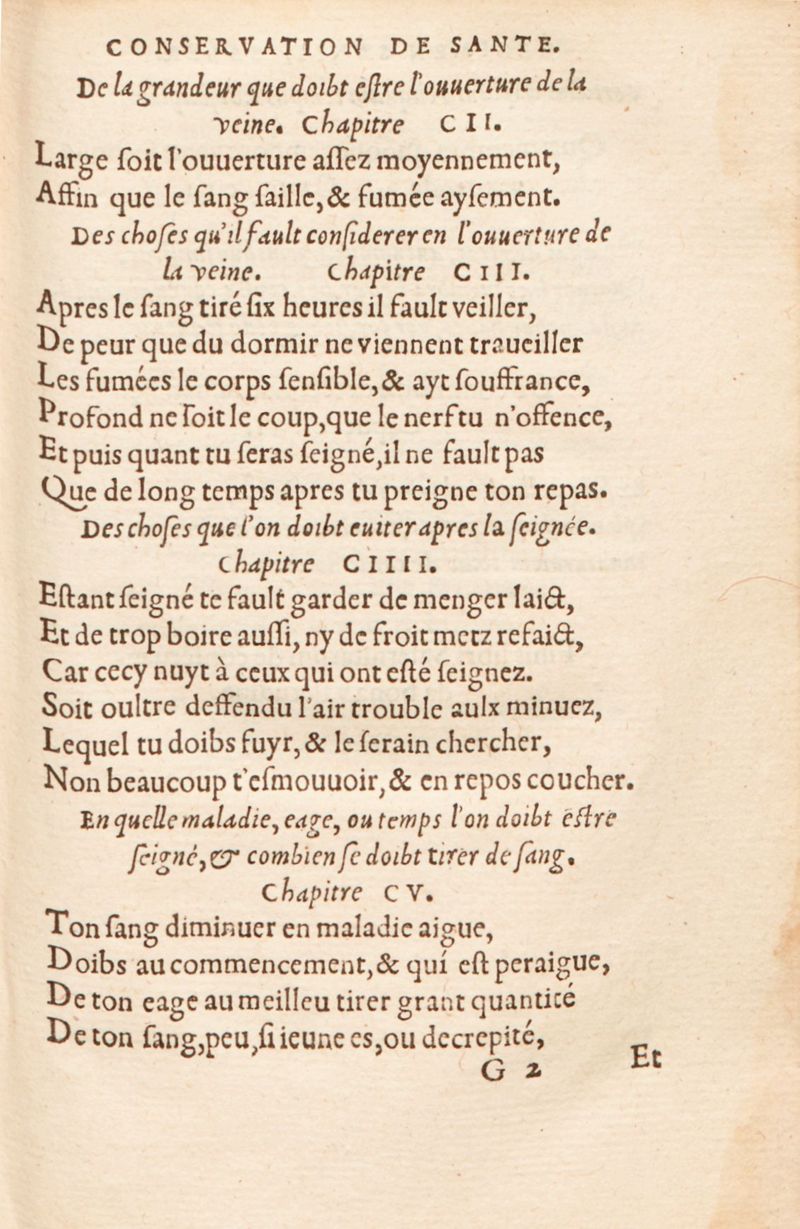 CONSERVATION DE SANTE.
De la grandeur que doibt eſtre l'ouuerture de la
veine. Chapitre CII.
Large ſoit l'ouuerture aſſez moyennement,
Affin que le ſang ſaille,& fumée ayſement.
Des choſes qu'il fault conſiderer en l'ouuerture de
la veine. Chapitre CIII.
Apres le ſang tiré ſix heures il fault veiller,
De peur que du dormir ne viennent traueiller
Les fumées le corps ſenſible,& ayt ſouffrance,
Profond ne ſoit le coup,que le nerf tu n'offence,
Et puis quant tu ſeras ſeigné,il ne fault pas
Que de long temps apres tu preigne ton repas.
Des choſes que l'on doibt euiter apres la ſeignée.
Chapitre CIIII.
Eſtant ſeigné te fault garder de menger laict,
Et de trop boire auſſi, ny de froit metz refaict,
Car cecy nuyt à ceux qui ont eſté ſeignez.
Soit oultre deffendu l'air trouble aulx minuez,
Lequel tu doibs fuyr,& le ſerain chercher,
Non beaucoup t'eſmouuoir,& en repos coucher.
En quelle maladie, eage, ou temps l'on doibt eſtre
ſeigné,& combien ſe doibt tirer de ſang.
Chapitre CV.
Ton ſang diminuer en maladie aigue,
Doibs au commencement,& qui eſt peraigue,
De ton eage au meilleu tirer grant quantité
De ton ſang,peu,ſi ieune es,ou decrepité,
G 2 Et